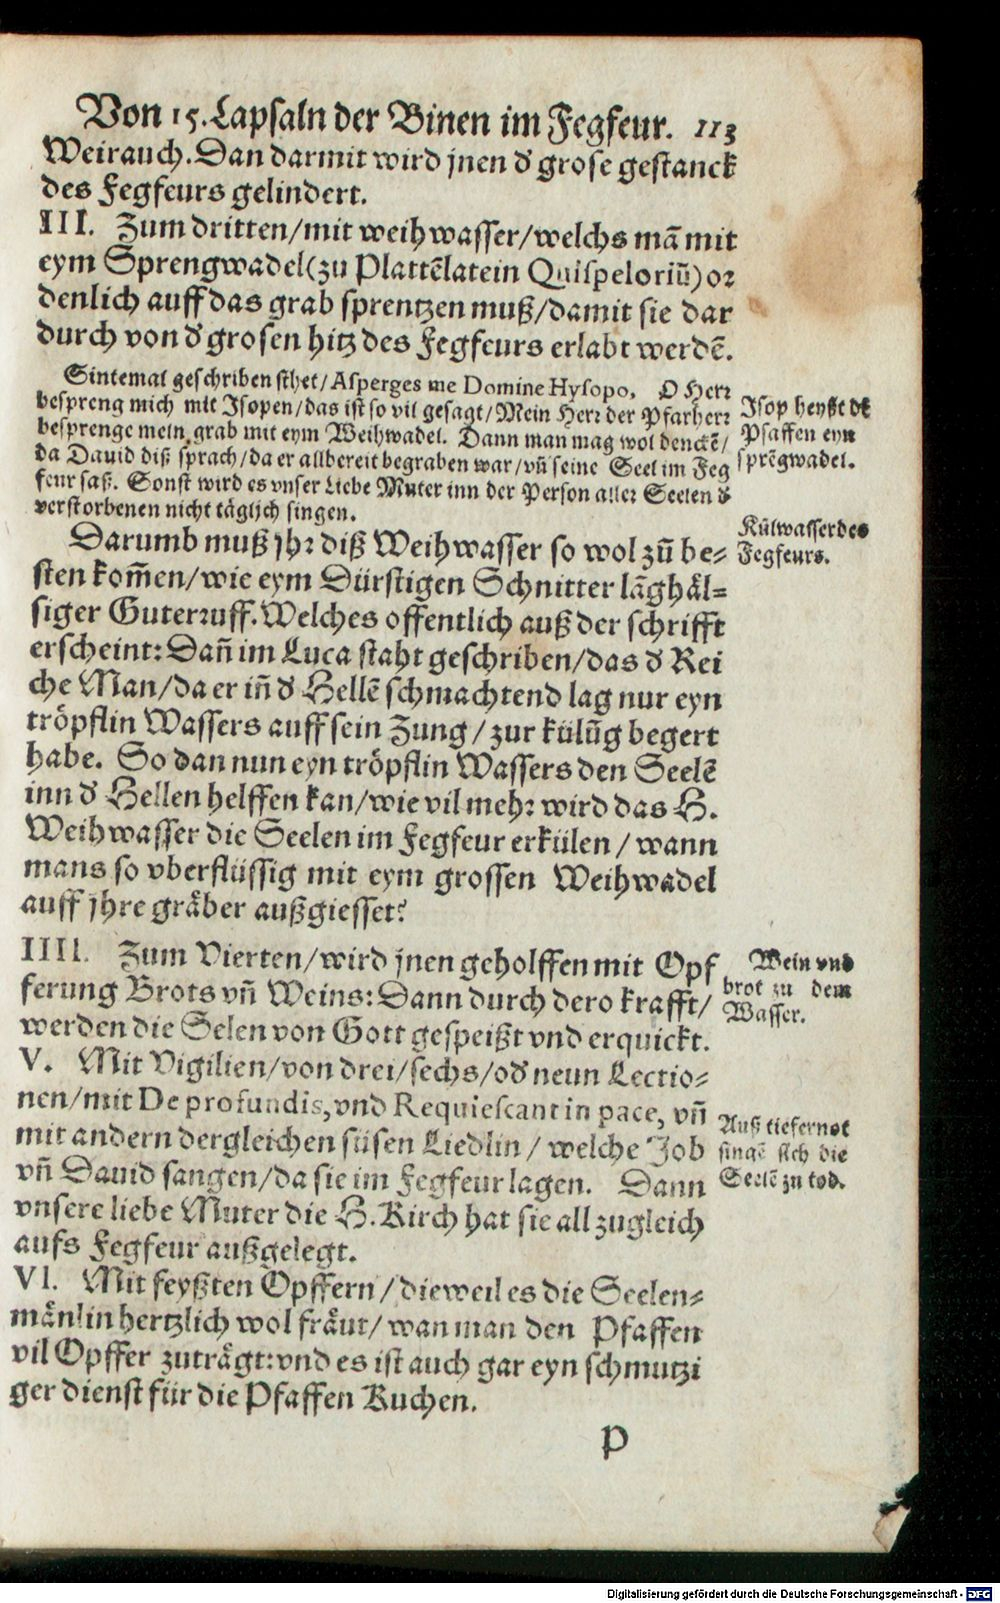 Von 15. Lapsaln der Binen im Fegfeur. 113
Weirauch. Dan darmit wird jnen d̕ grose gestanck
des Fegfeurs gelindert.
III. Zum dritten/mit weihwasser/welchs mã mit
eym Sprengwadel(zu Plattẽlatein Quispeloriũ) or
denlich auff das grab sprentzen muß/damit sie dar
durch von d̕ grosen hitz des Fegfeurs erlabt werdẽ.
Sintemal geschriben sthet/Asperges me Domine Hysopo, O Herr
bespreng mich mit Isopen/das ist so vil gesagt/Mein Herr der Pfarherr
besprenge mein grab mit eym Weihwadel. Dann man mag wol denckẽ/
da Dauid diß sprach/da er allbereit begraben war/vñ seine Seel im Feg
feur saß. Sonst wird es vnser Liebe Muter inn der Person aller Seelen d̕
verstorbenen nicht täglich singen.
Isop heyßt dẽ
Pfaffen eyn
sprẽgwadel.
Darumb muß jhr diß Weihwasser so wol zũ be-
sten kom̃en/wie eym Dürstigen Schnitter lãghäl-
siger Guterruff. Welches offentlich auß der schrifft
erscheint: Dañ im Luca staht geschriben/das d̕ Rei
che Man/da er iñ d̕ Hellẽ schmachtend lag nur eyn
tröpflin Wassers auff sein Zung/zur külũg begert
habe. So dan nun eyn tröpflin Wassers den Seelẽ
inn d̕ Hellen helffen kan/wie vil mehr wird das H.
Weihwasser die Seelen im Fegfeur erkülen/wann
mans so vberflüssig mit eym grossen Weihwadel
auff jhre gräber außgiesset?
Külwasser des
Fegfeurs.
IIII. Zum Vierten/wird jnen geholffen mit Opf
ferung Brots vñ Weins: Dann durch dero krafft/
werden die Selen von Gott gespeißt vnd erquickt.
Wein vnd
brot zu dem
Wasser.
V. Mit Vigilien/von drei/sechs/od̕ neun Lectio-
nen/mit De profundis, vnd Requiescant in pace, vñ
mit andern dergleichen süsen Liedlin/welche Job
vñ Dauid sangen/da sie im Fegfeur lagen. Dann
vnsere liebe Muter die H. Kirch hat sie all zugleich
aufs Fegfeur außgelegt.
Auß tiefer not
singẽ sich die
Seelẽ zu tod.
VI. Mit feyßten Opffern/dieweil es die Seelen-
mänlin hertzlich wol fräut/wan man den Pfaffen
vil Opffer zuträgt: vnd es ist auch gar eyn schmutzi
ger dienst für die Pfaffen Kuchen.
P
Digitalisierung gefördert durch die Deutsche Forschungsgemeinschaft - DFG